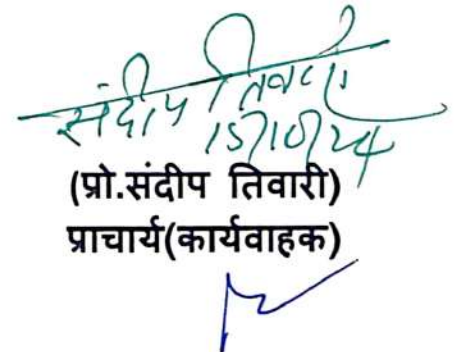 संदीप तिवारी
15/10/24
(प्रो.संदीप तिवारी)
प्राचार्य(कार्यवाहक)